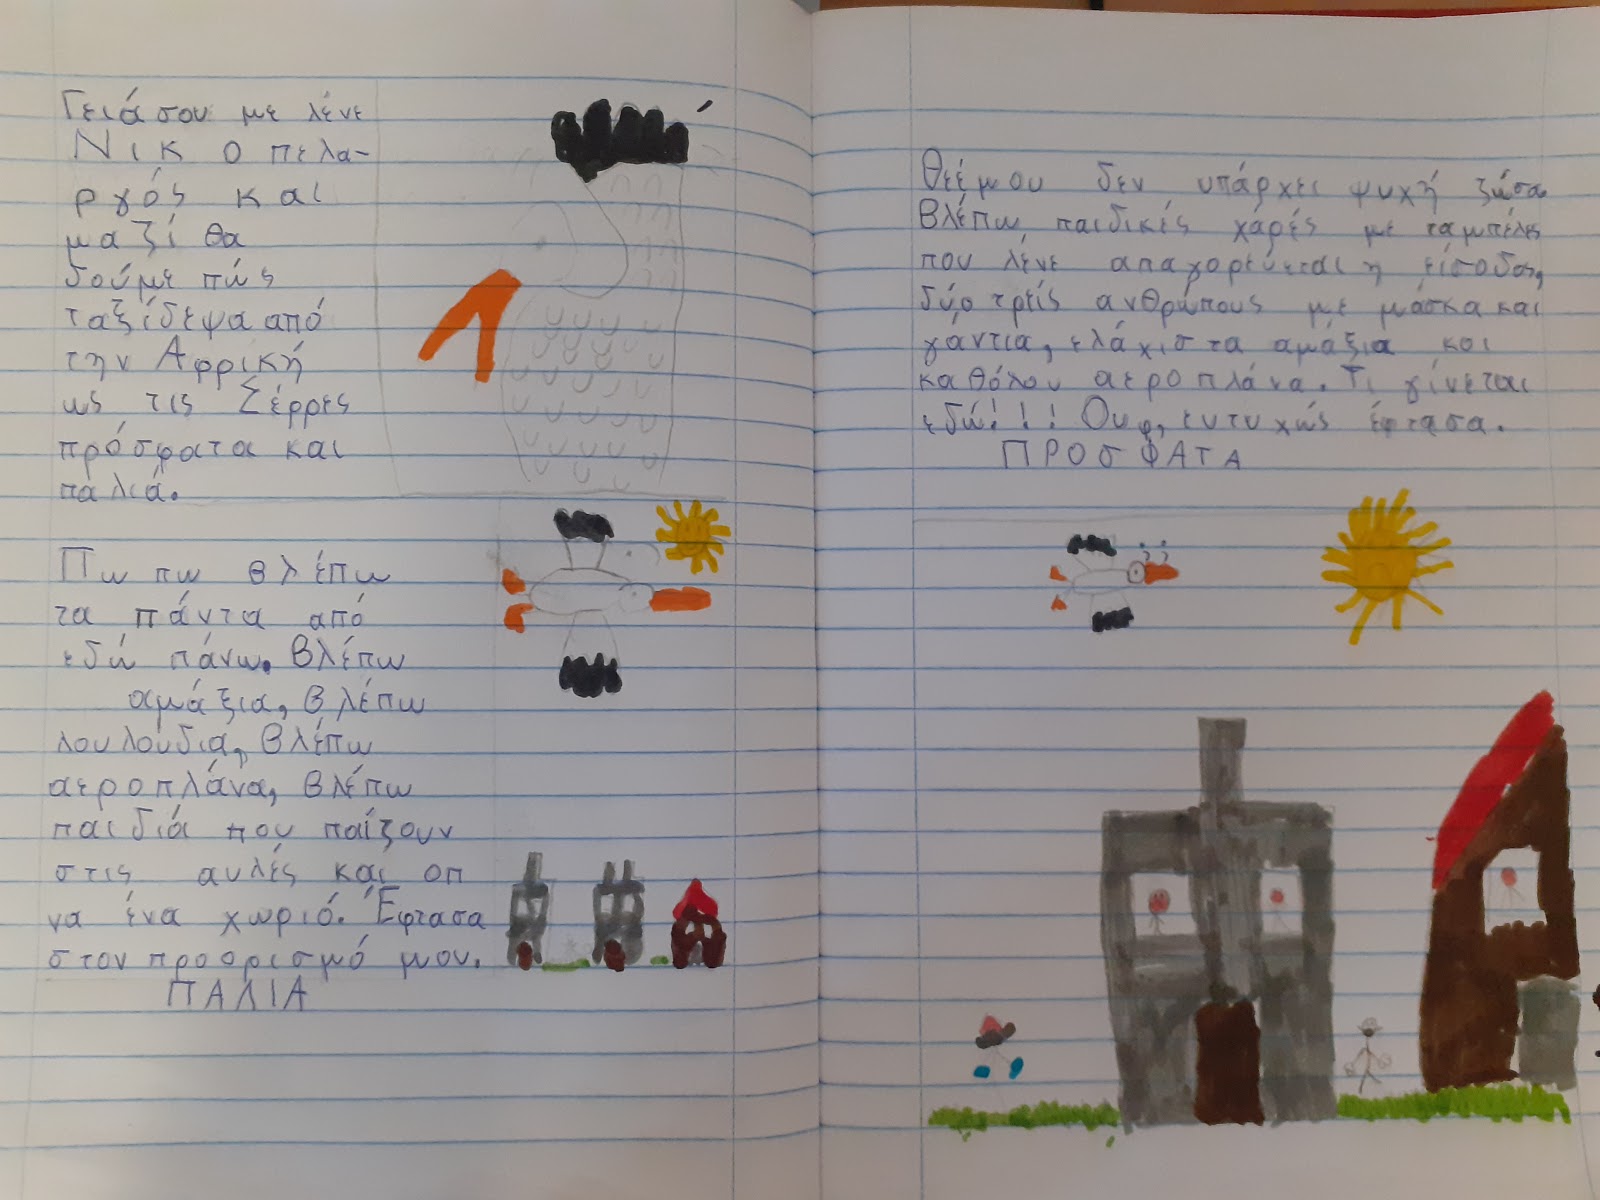 Γειά σου με λένε
Νικ ο πελα-
ργός και
μαζί θα
δούμε πώς
ταξίδεψα από
την Αφρική
ως τις Σέρρες
πρόσφατα και
παλιά.
Πω πω βλέπω
τα πάντα από
εδώ πάνω. Βλέπω
αμάξια, βλέπω
λουλούδια, βλέπω
αεροπλάνα, βλέπω
παιδιά που παίζουν
στις αυλές και οπ
να ένα χωριό. Έφτασα
στον προορισμό μου.
ΠΑΛΙΑ
Θεέ μου δεν υπάρχει ψυχή ζώσα.
Βλέπω παιδικές χάρές με ταμπέλες
που λένε απαγορεύεται η είσοδος,
δύο τρείς ανθρώπους με μάσκα και
γάντια, ελάχιστα αμάξια και
καθόλου αεροπλάνα. Τι γίνεται
εδώ!!! Ουφ, ευτυχώς έφτασα.
ΠΡΟΣΦΑΤΑ